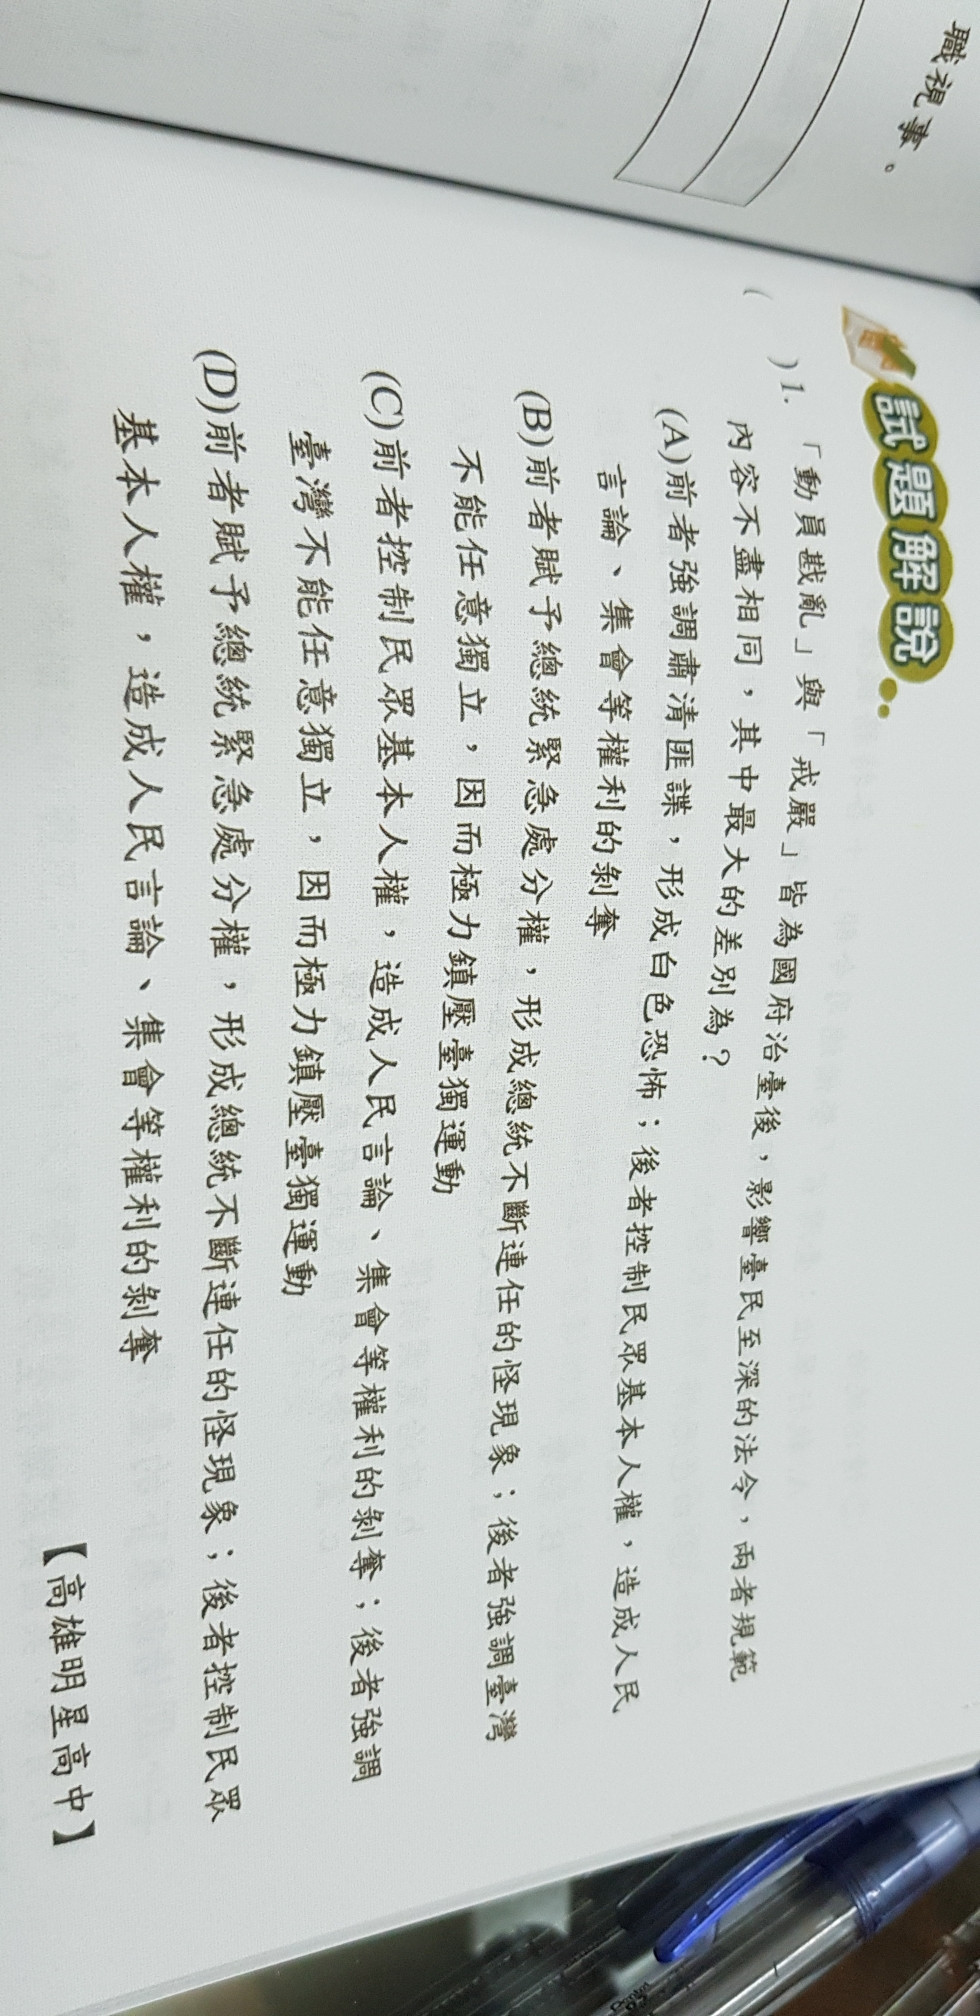 職視事。
試題解說
(　　) 1. 「動員戡亂」與「戒嚴」皆為國府治臺後，影響臺民至深的法令，兩者規範
內容不盡相同，其中最大的差別為？
(A)前者強調肅清匪諜，形成白色恐怖；後者控制民眾基本人權，造成人民
言論、集會等權利的剝奪
(B)前者賦予總統緊急處分權，形成總統不斷連任的怪現象；後者強調臺灣
不能任意獨立，因而極力鎮壓臺獨運動
(C)前者控制民眾基本人權，造成人民言論、集會等權利的剝奪；後者強調
臺灣不能任意獨立，因而極力鎮壓臺獨運動
(D)前者賦予總統緊急處分權，形成總統不斷連任的怪現象；後者控制民眾
基本人權，造成人民言論、集會等權利的剝奪
【高雄明星高中】
Pentel